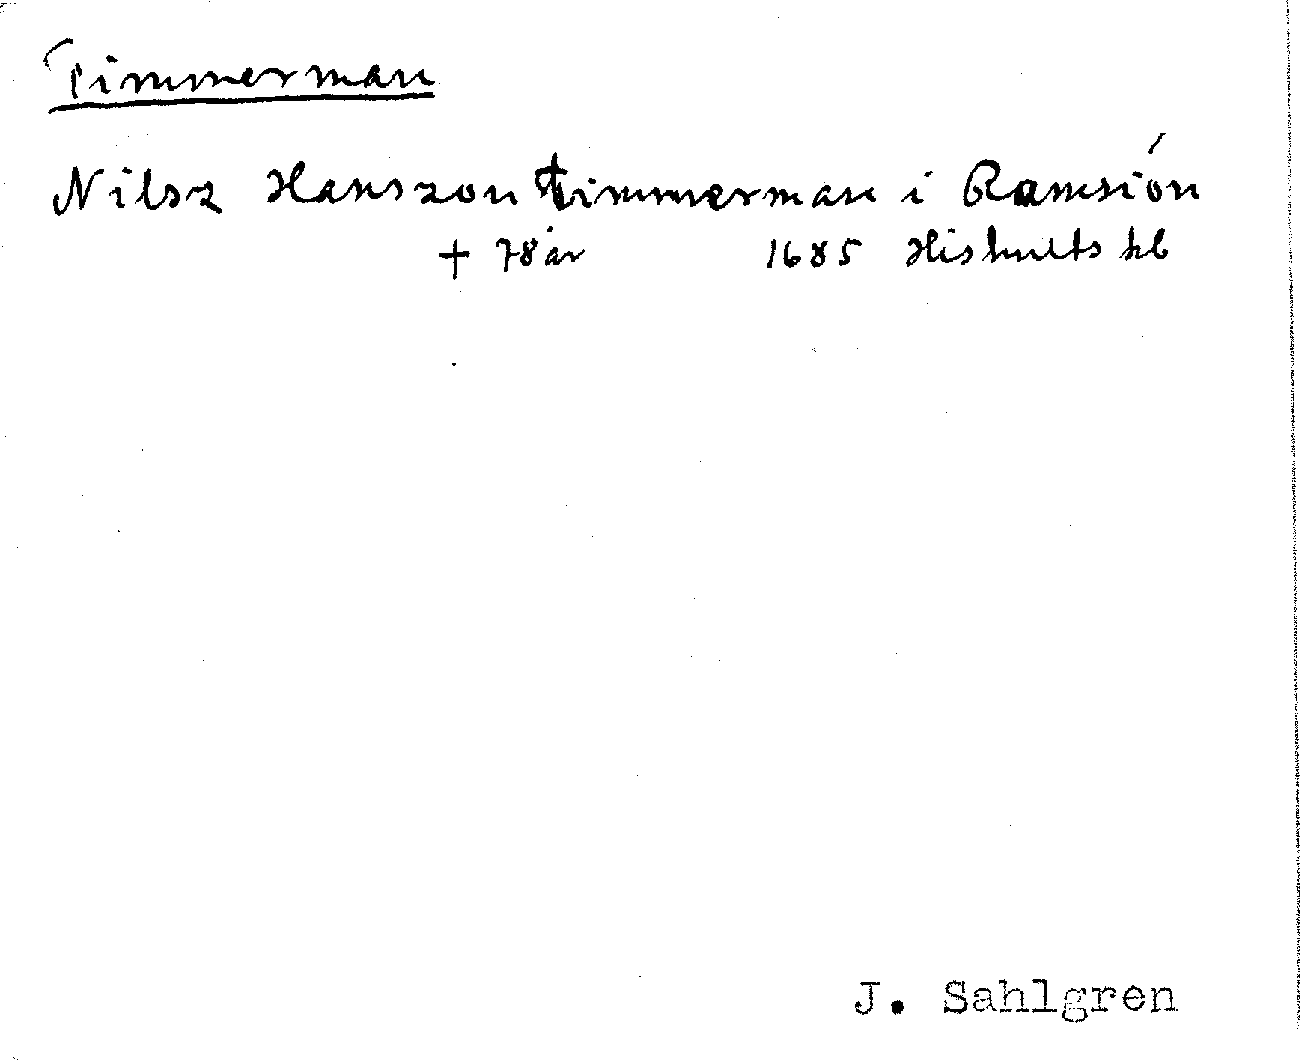 Timmerman
Nilsz Hanszon timmerman i Ramsión
+ 78 år 1685 Hishults kb
J. Sahlgren